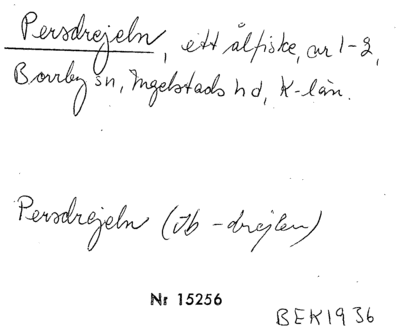 Persdrejeln, ett ålfiske, ar 1-2,
Borrby sn, Ingelstads hd, K-län.
Persdrejeln (Ib -drejlen)
Nr 15256
BEK1936